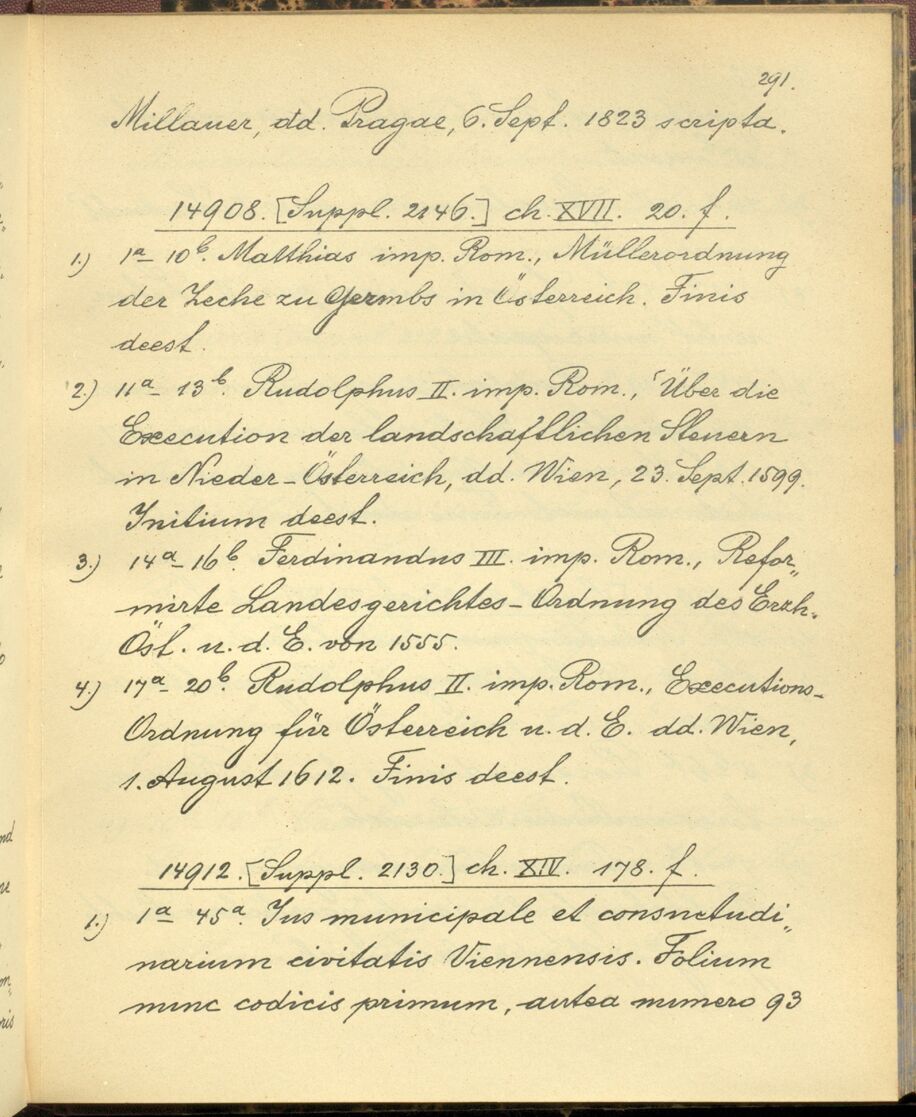 291.
Millauer, dd. Pragae, 6. Sept. 1823 scripta.
14908. [Suppl. 2146.] ch. XVII. 20. f.
1.) 1a- 10b. Matthias imp. Rom., Müllerordnung
der Zeche zu Germbs in Österreich. Finis
deest.
2.) 11a- 13b. Rudolphus II. imp. Rom., Über die
Execution der landschaftlichen Steuern
in Nieder-Österreich, dd. Wien, 23. Sept. 1599.
Initium deest.
3.) 14a- 16b. Ferdinandus III. imp. Rom., Refor„
mirte Landesgerichtes-Ordnung des Erzh.
Öst. u. d. E. von 1555.
4.) 17a- 20b. Rudolphus II. imp. Rom., Executions-
Ordnung für Österreich u. d. E. dd. Wien,
1. August 1612. Finis deest.
14912. [Suppl. 2130.] ch. XIV. 178. f.
1.) 1a- 45a. Jus municipale et consuetudi„
narium civitatis Viennensis. Folium
nunc codicis primum, antea numero 93